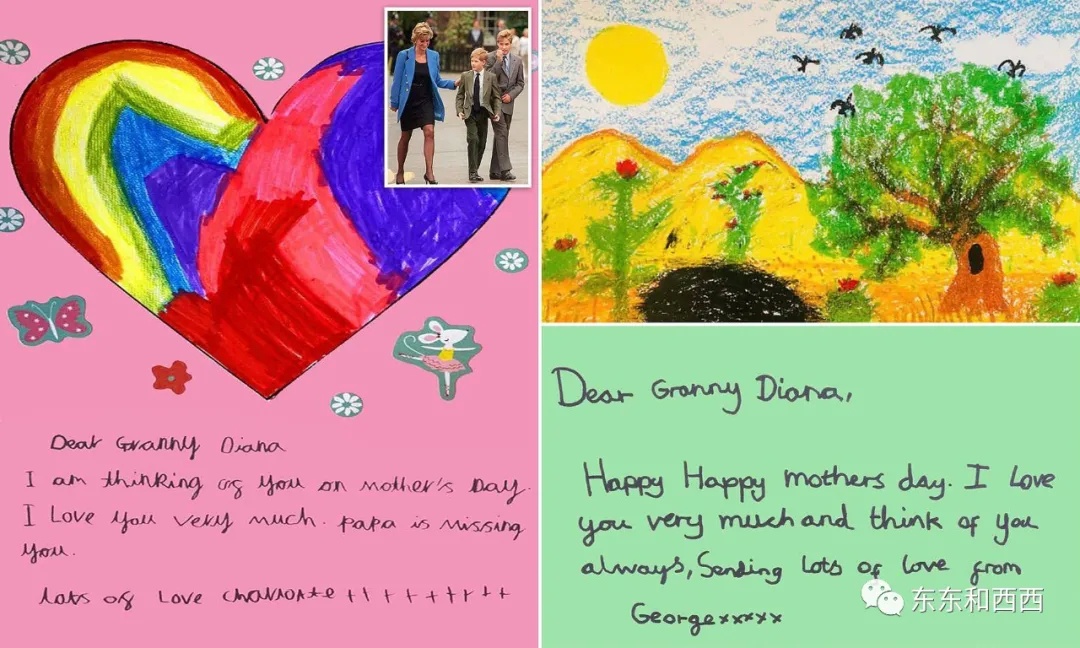 Dear Granny Diana
I am thinking of you on mother's Day.
I Love you very much. papa is missing
you.
lots of Love charlotte +++++++++
Dear Granny Diana,
Happy Happy mothers day. I Love
you very much and think of you
always, Sending Lots of love from
Georgexxxxx
东东和西西